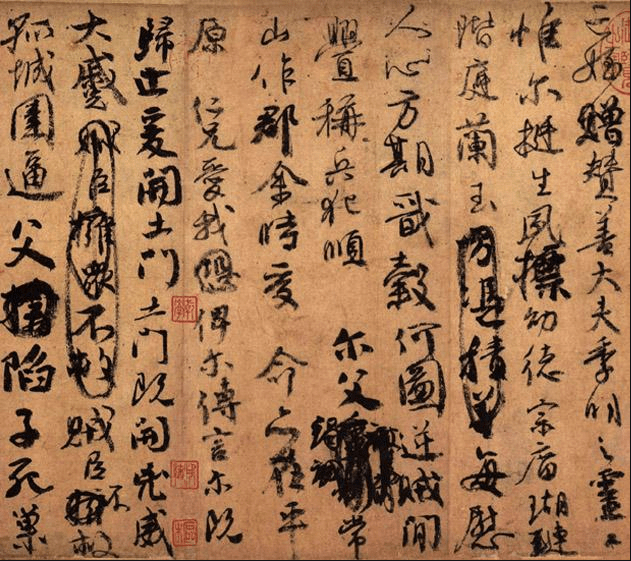 亡姪贈贊善大夫季明之靈曰
惟尔挺生夙標幼德宗廟瑚璉
階庭蘭玉方憑積善每慰
人心方期戩穀何圖逆賊間
釁稱兵犯順尔父常
山作郡余時受命亦在平
原仁兄愛我恐俾尔傳言尔既
歸止爰開土門土門既開兇威
大蹙賊臣擁眾不救賊臣不救
孤城圍逼父陷子死巢